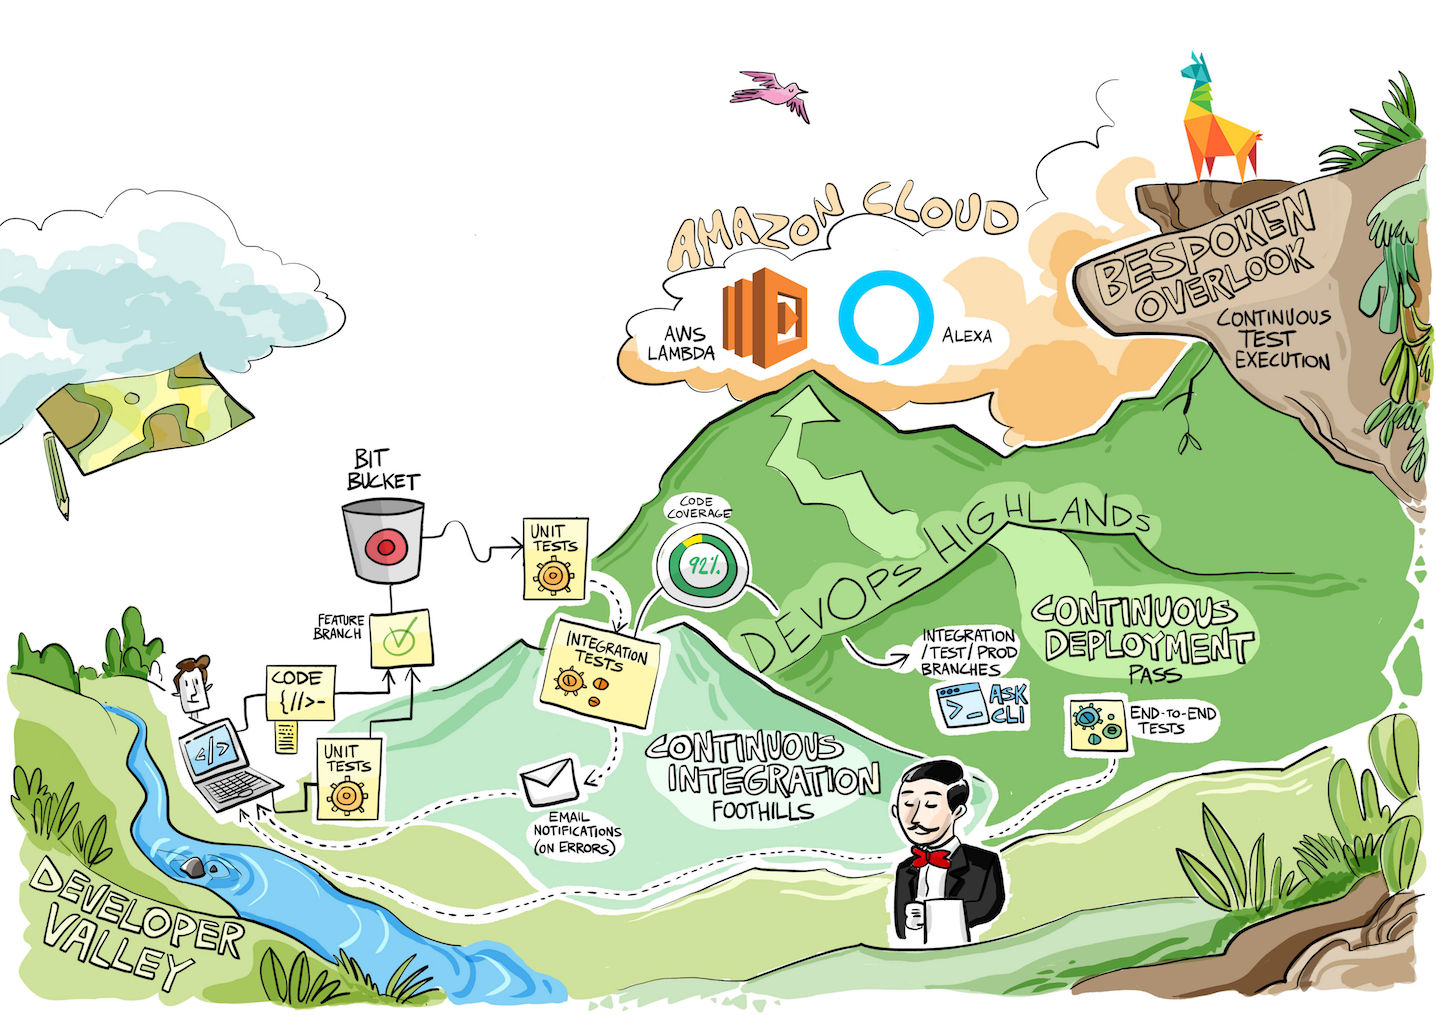 AMAZON CLOUD
AWS
LAMBDA
ALEXA
BESPOKEN
OVERLOOK
CONTINUOUS
TEST
EXECUTION
BIT
BUCKET
UNIT
TESTS
CODE
COVERAGE
92%
DEVOPS HIGHLANDS
FEATURE
BRANCH
INTEGRATION
TESTS
INTEGRATION
/TEST/PROD
BRANCHES
ASK
CLI
CONTINUOUS
DEPLOYMENT
PASS
CODE
{//>-
</>
UNIT
TESTS
END-TO-END
TESTS
CONTINUOUS
INTEGRATION
FOOTHILLS
EMAIL
NOTIFICATIONS
(ON ERRORS)
DEVELOPER
VALLEY